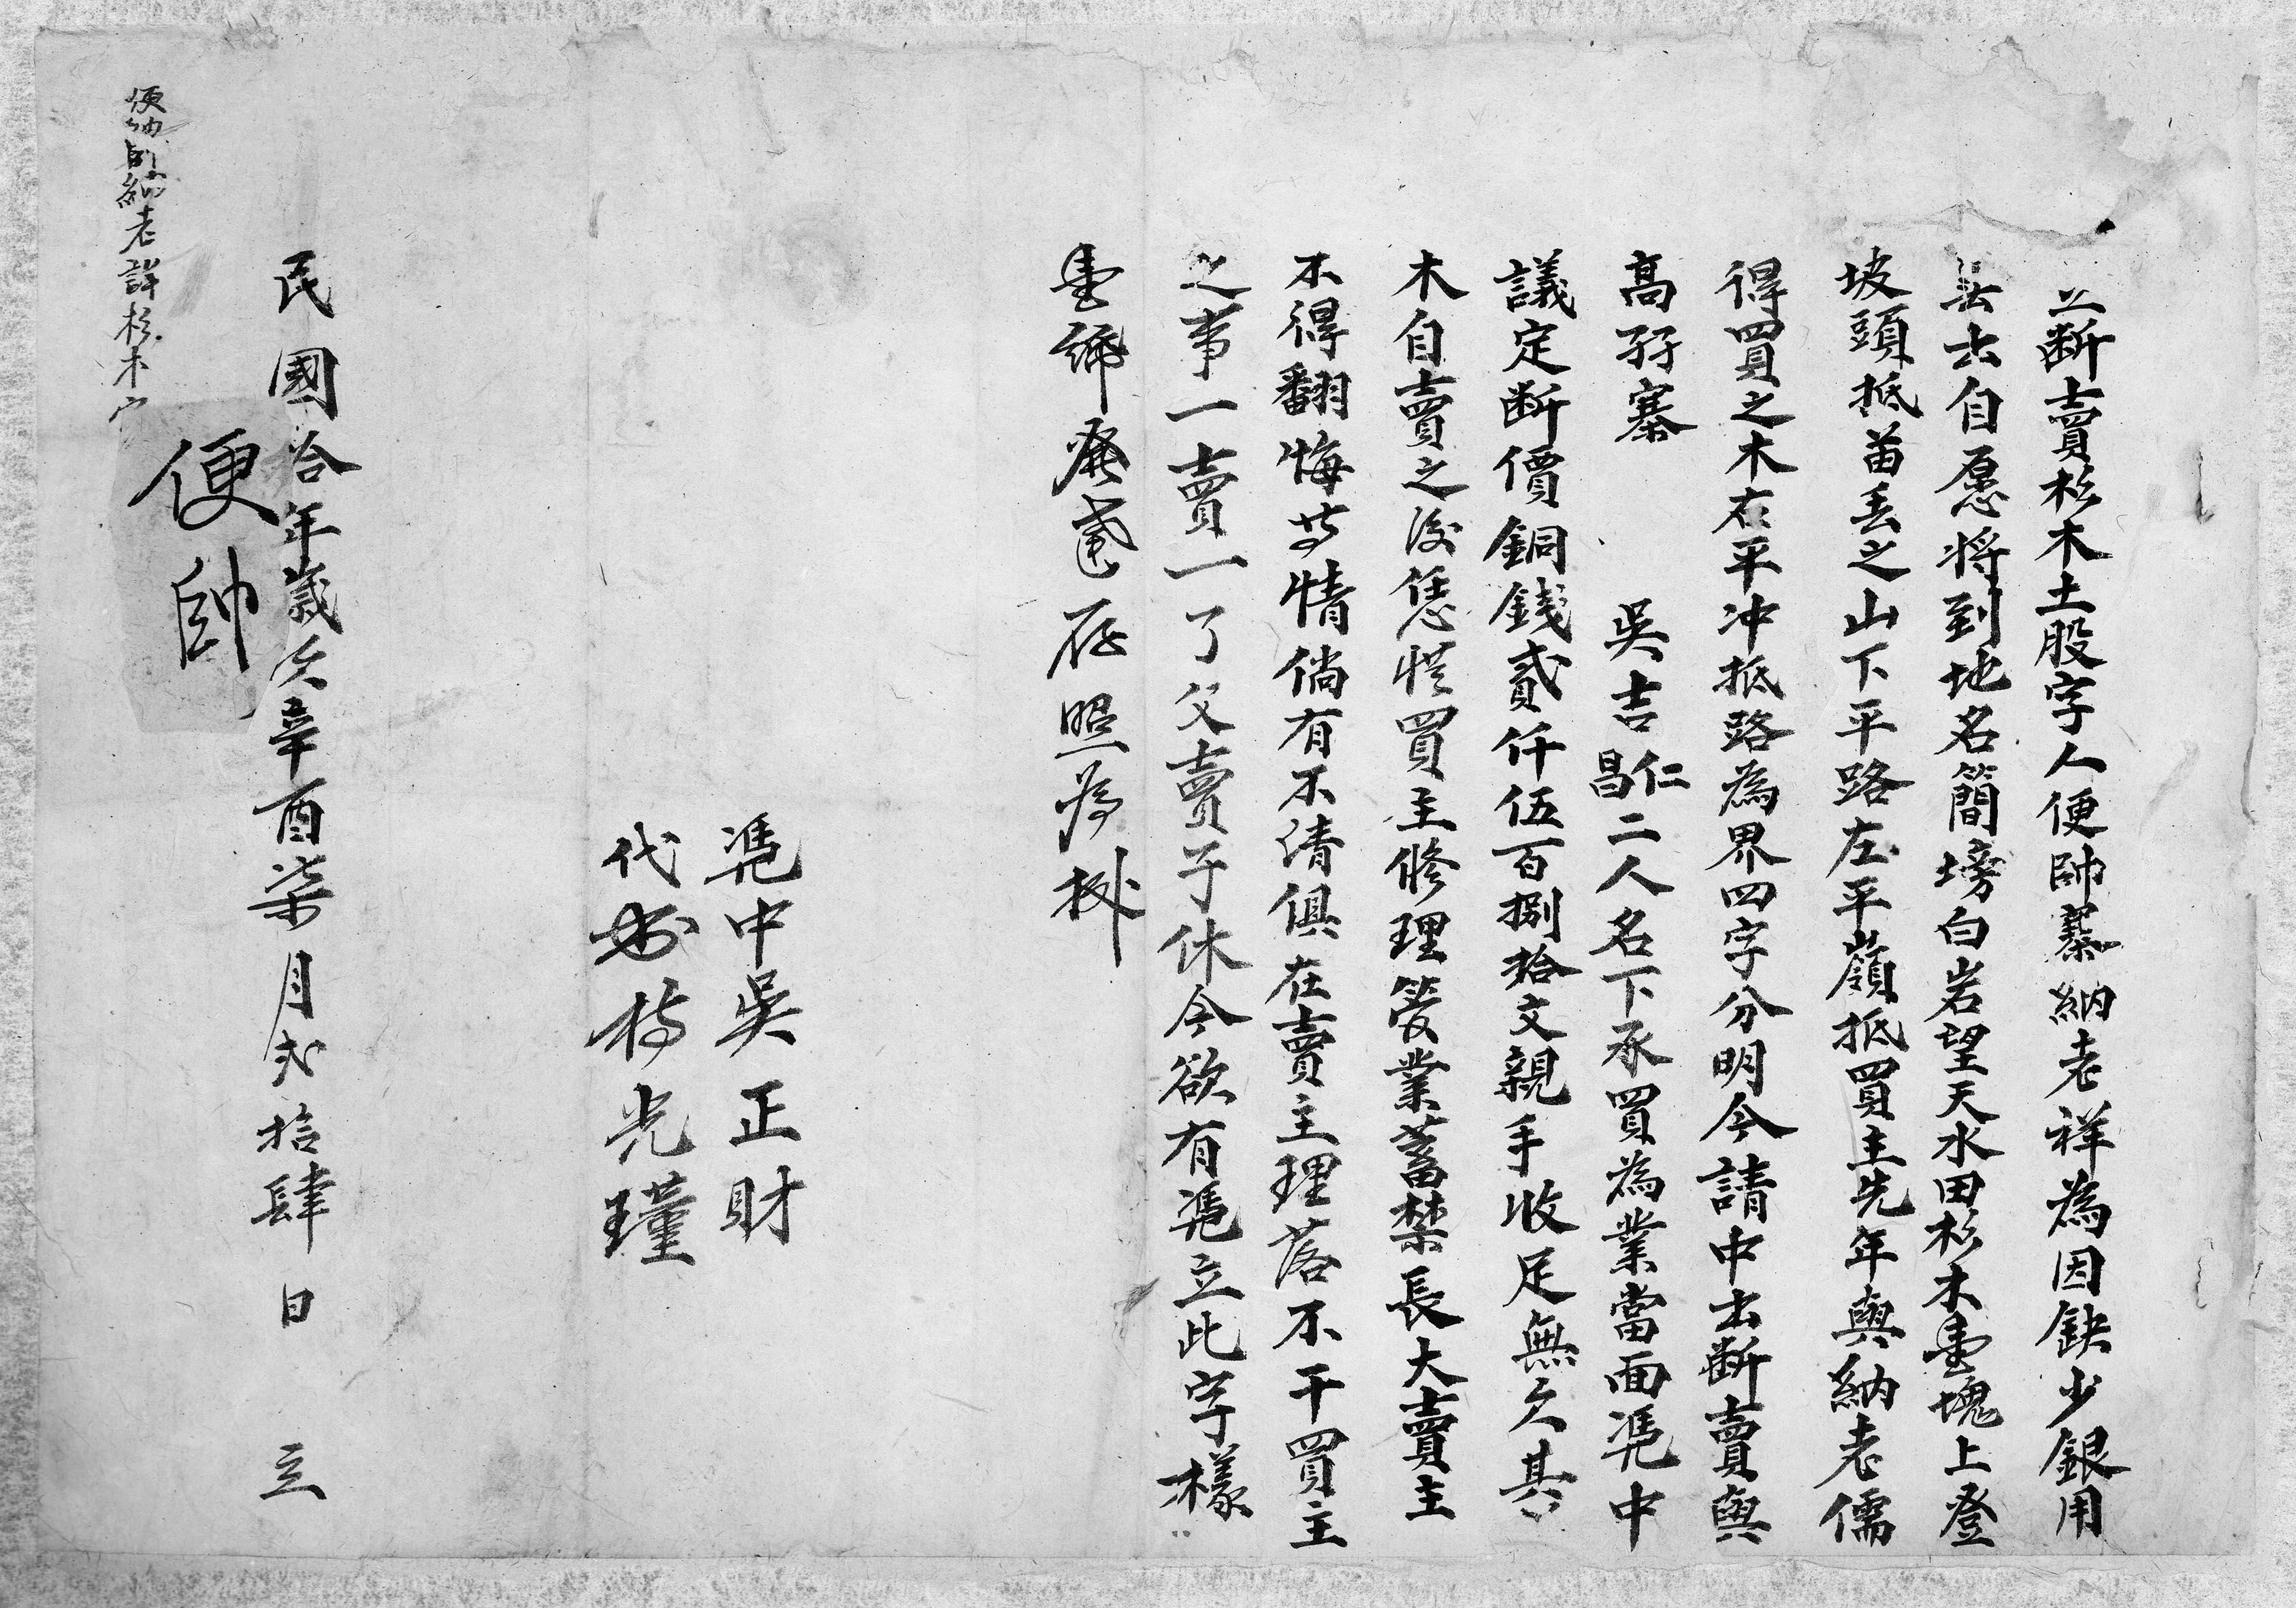 立断賣杉木土股字人便帥寨納老祥為因缺少銀用
無出自愿将到地名簡塝白岩望天水田杉木壹塊上登
坡頭抵苗丢之山下平路左平嶺抵買主先年與納老儒
得買之木右平冲抵路為界四字分明今請中出断賣與
高孖寨 吳吉仁昌二人名下承買為業當面凴中
議定断價銅錢貳仟伍百捌拾文親手收足無欠其
木自賣之後恁凭買主修理管業蓄禁長大賣主
不得翻悔等情倘有不清俱在賣主理落不干買主
之事一賣一了父賣子休今欲有凴立此字樣
壹紙發達存照為據
凴中吳正財
代書楊光瑾
民國拾年歲次辛酉柒月貳拾肆日 立
便帥
便帥納老詳杉木字